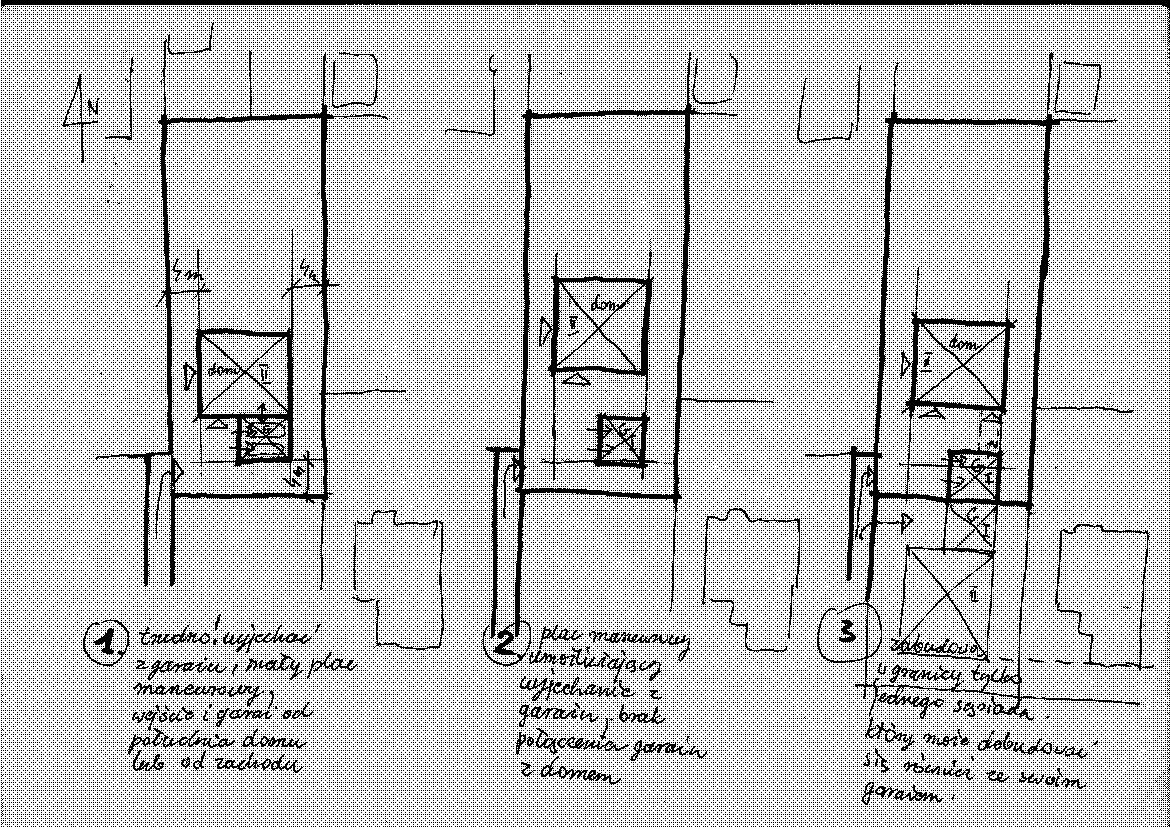 N
4 m
4 m
dom II
4 m
1. trudno! wyjechać
z garażu, mały plac
manewrowy,
wejście i garaż od
południa domu
lub od zachodu
dom
II
G
I
2 plac manewrowy
umożliwiający
wyjechanie z
garażu, brak
połączenia garażu
z domem
dom
II
G
I
G
I
II
3 zabudowa
w granicy tylko
jednego sąsiada.
który może dobudować
się również ze swoim
garażem.